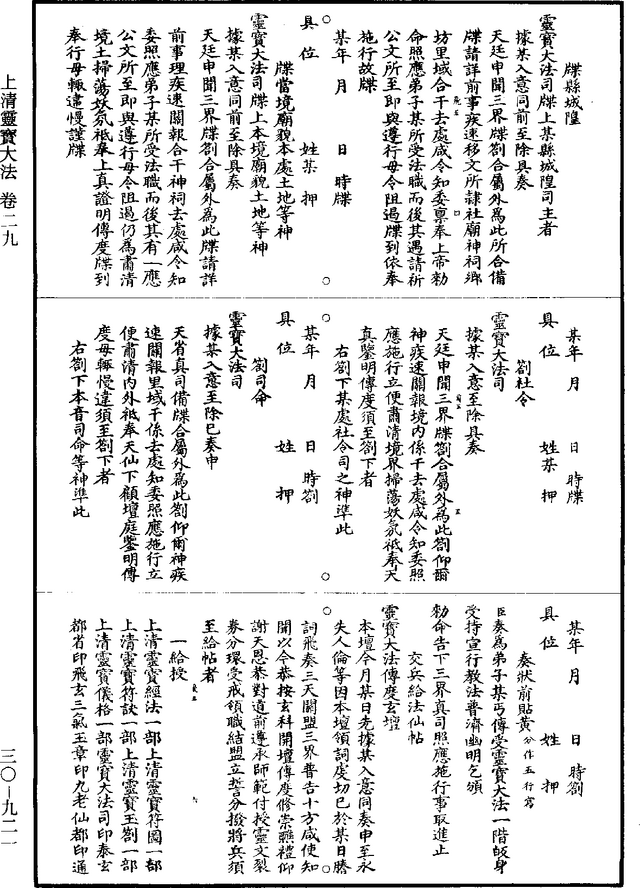 牒縣城隍
靈寶大法司牒上某縣城隍司主者
據某入意同前至除具奏
天廷申聞三界牒劄合屬外爲此所合備
牒請詳前事疾速移文所隸社廟神祠鄉
坊里域合干去處咸令知委稟奉上帝勑
命照應弟子某所受法職而後其遇請祈
公文所至即與遵行毋令阻遏牒到依奉
施行故牒
某年 月 日 時牒
具位 姓某 押
牒當境廟貌本處土地等神
靈寶大法司牒上本境廟貌土地等神
據某入意同前至除具奏
天廷申聞三界牒劄合屬外爲此牒請詳
前事理疾速關報合干神祠去處咸令知
委照應弟子某所受法職而後其有一應
公文所至即與遵行毋令阻遏仍爲肅清
境土掃蕩妖氛祇奉上真證明傳度牒到
奉行毋輒違慢謹牒
某年 月 日 時牒
具位 姓某 押
劄社令
靈寶大法司
據某入意至除具奏
天廷申聞三界牒劄合屬外爲此劄仰爾
神疾速關報境內係干去處咸令知委照
應施行立便肅清境界掃蕩妖氛祇奉天
真鑒明傳度須至劄下者
右劄下某處社令司之神準此
某年 月 日 時劄
具位 姓 押
劄司命
靈寶大法司
據某入意至除已奏申
天省真司備牒合屬外爲此劄仰爾神疾
速關報里域干係去處知委照應施行立
便肅清內外祇奉天仙下顧壇庭鑒明傳
度毋輒慢違須至劄下者
右劄下本音司命等神準此
某年 月 日 時劄
具位 姓 押
奏狀前貼黃分作五行寫
臣奏爲弟子某丐傳受靈寶大法一階皈身
受持宣行教法普濟幽明乞頒
勑命告下三界真司照應施行事取進止
交兵給法仙帖
靈寶大法傳度玄壇
本壇今月某日先據某入意同奏申至永
失人倫等因本壇領詞虔切已於某日謄
詞飛奏三天關盟三界普告十方咸使知
聞以今恭按玄科開壇傳度修崇醮禮仰
謝天恩恭對道前遵承師範付授靈文裂
券分環受戒領職結盟立誓分撥將兵須
至給帖者
一給授
上清靈寶經法一部上清靈寶符圖一部
上清靈寶符訣一部上清靈寶玉劄一部
上清靈寶儀格一部靈寶大法司印泰玄
都省印飛玄三氣玉章印九老仙都印通
上清靈寶大法 卷二九
三〇—九二一